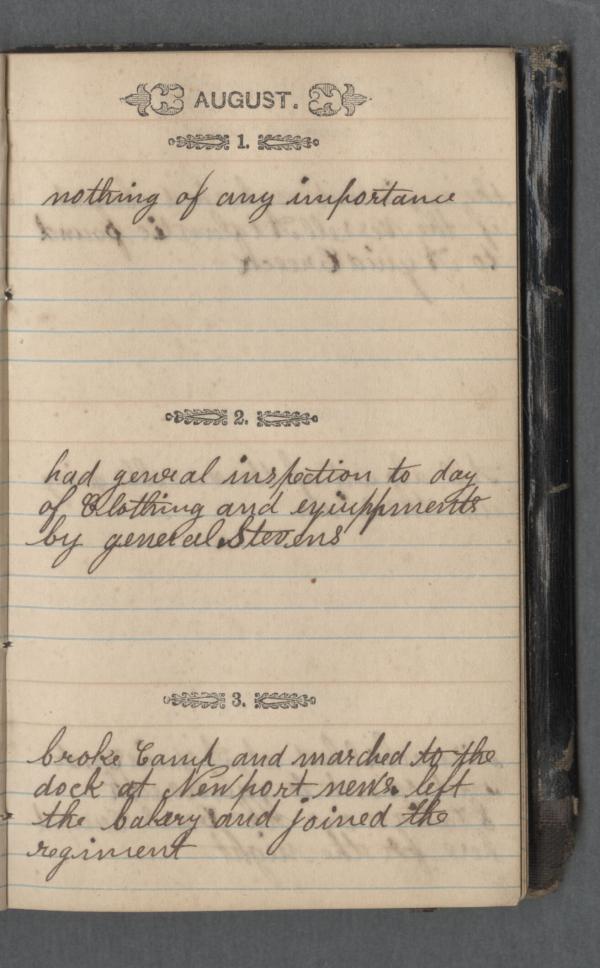 AUGUST.
1.
nothing of any importance
2.
had general inspection to day
of Clothing and equippments
by general Stevens
3.
broke Camp and marched to the
dock at Newport news. left
the bakery and joined the
regiment